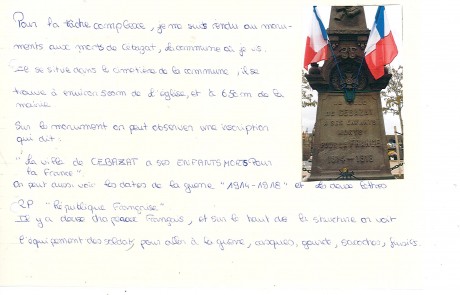 Pour la tâche complexe, je me suis rendu au monu-
ments aux morts de Cebazat, la commune où je vis.
Il se situe dans le cimetière de la commune, il se
trouve à environ 500m de l'église, et à 650m de la
mairie.
Sur le monument on peut observer une inscription
qui dit:
"La ville de CEBAZAT a ses ENFANTS MORTS Pour
la France"
On peut aussi voir les dates de la guerre "1914-1918" et les deux lettres
RP "République Française"
Il y a deux drapeaux Français, et sur le haut de la structure on voit
l'équipement des soldats, pour aller à la guerre, casques, gourde, sacoches, fusils.
DE CEBAZAT
A SES ENFANTS
MORTS
FRANCE
1914-1918